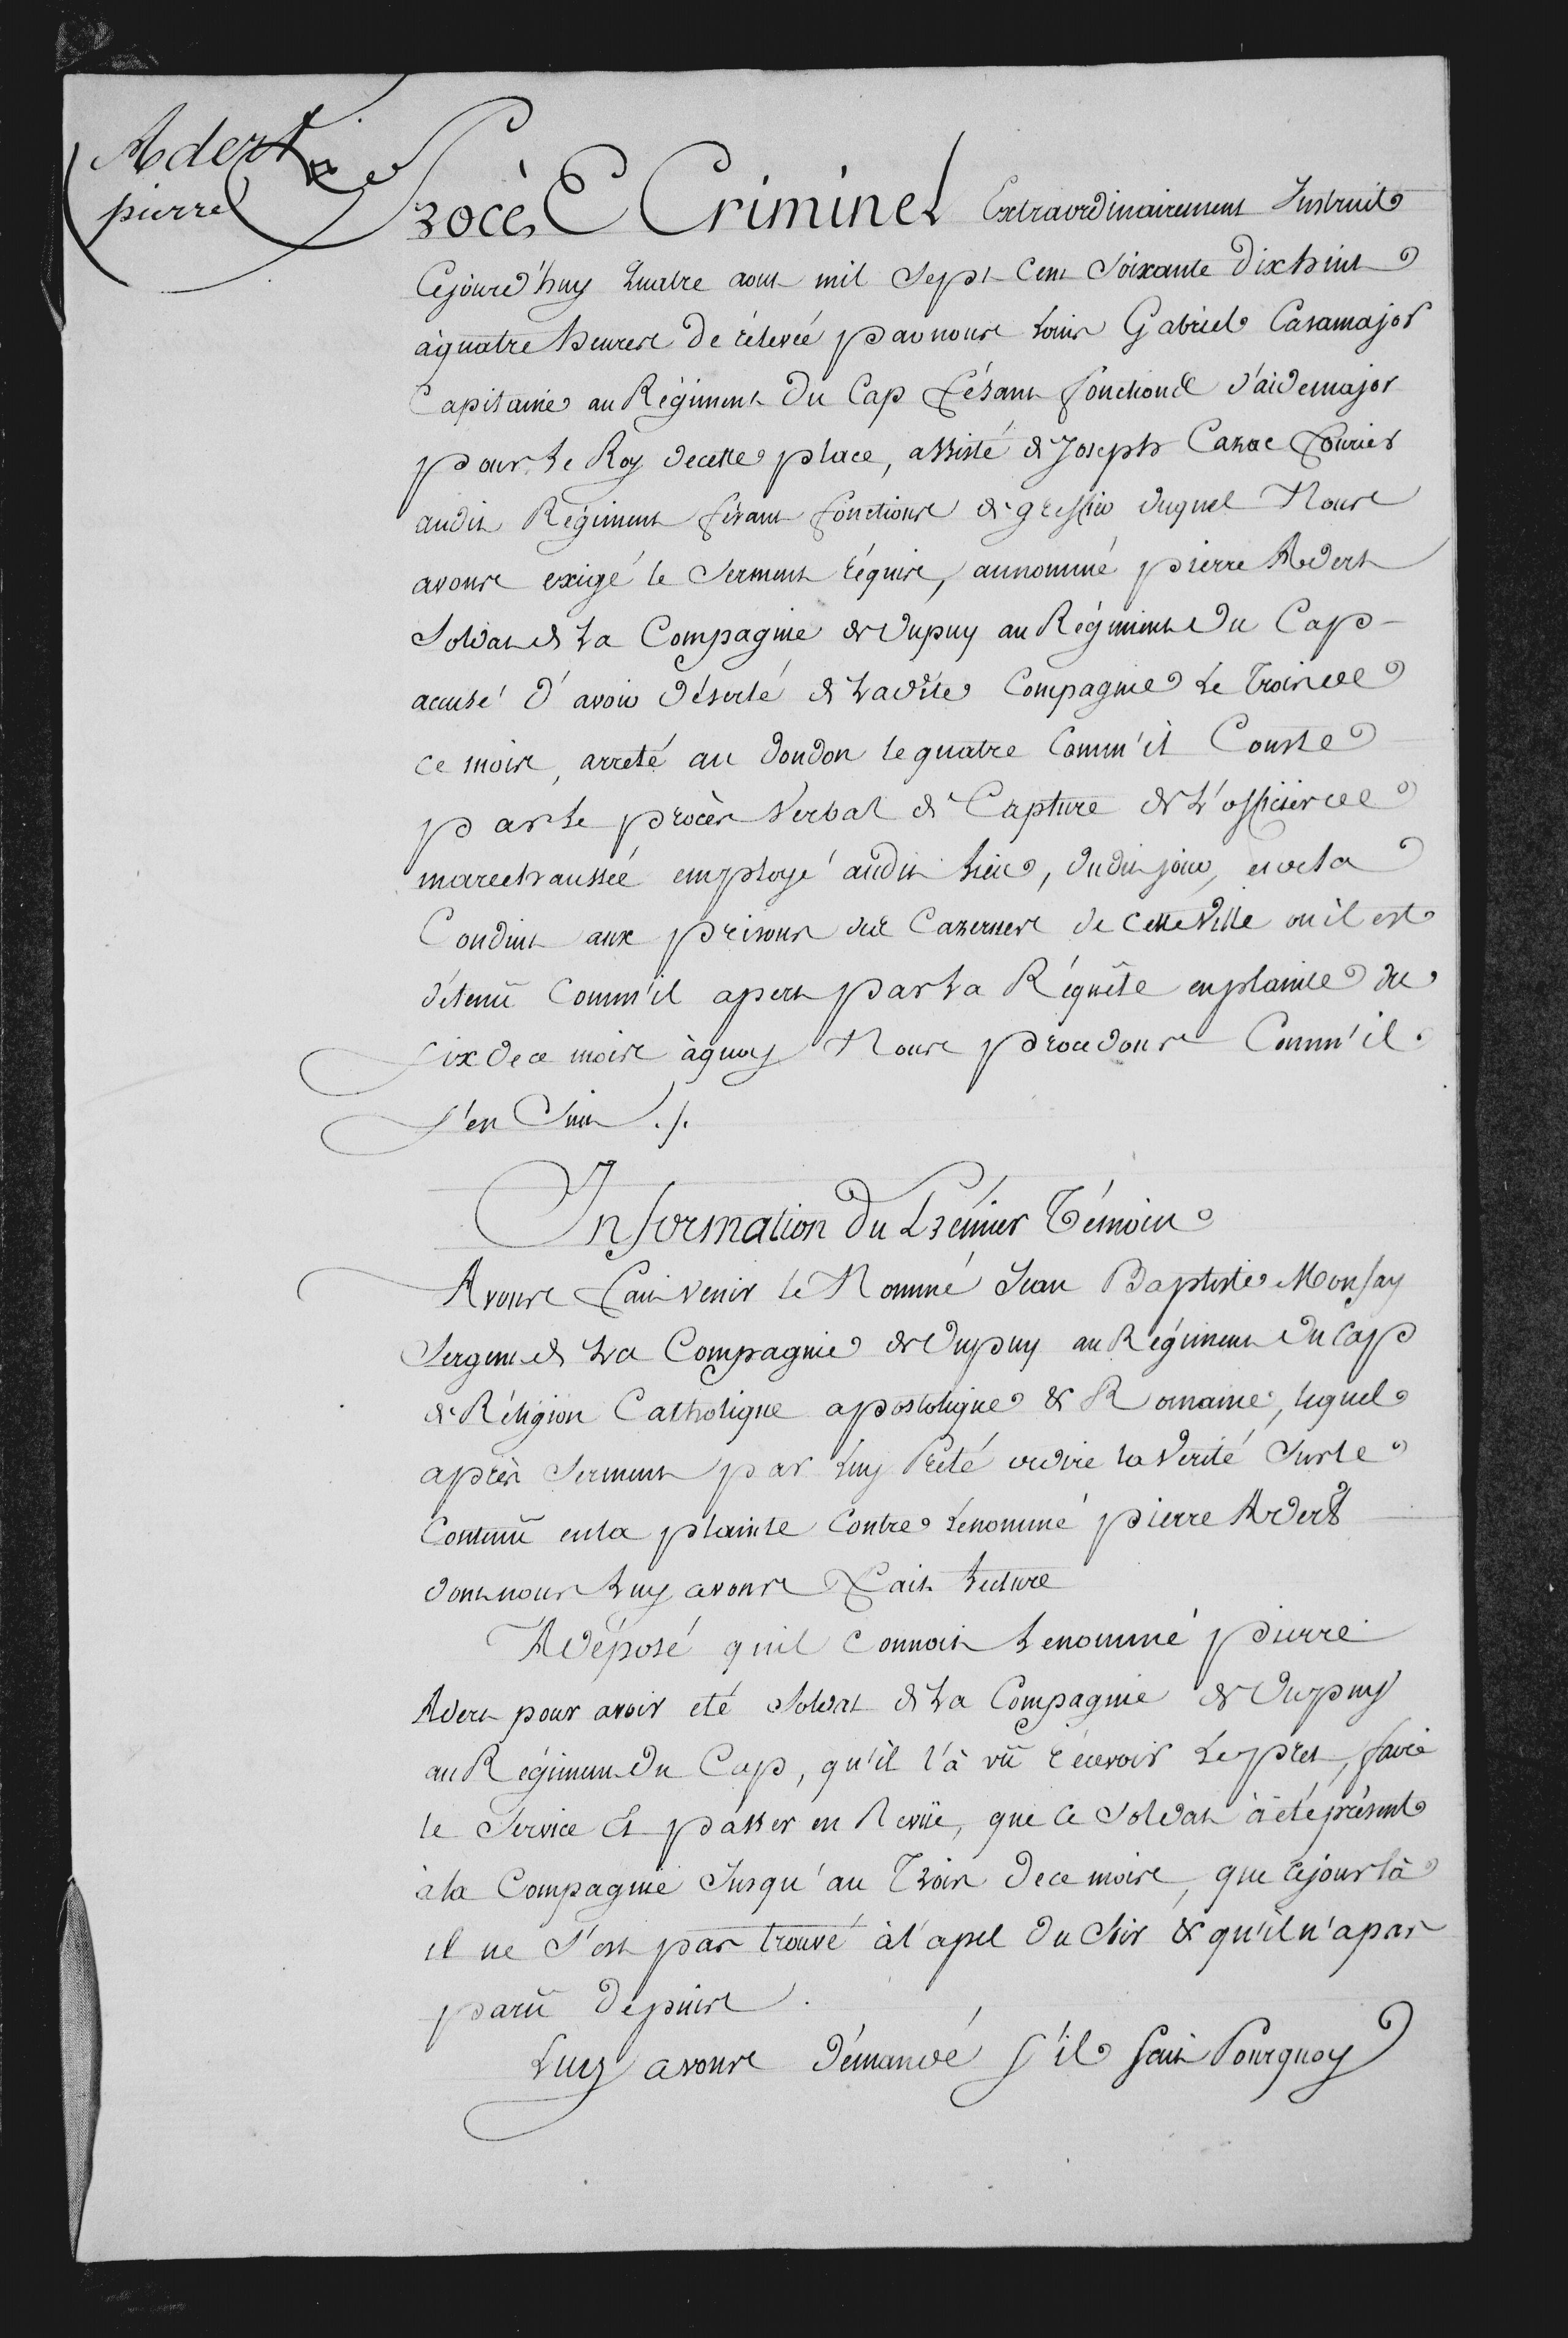 Adert
pierre
Procès Criminel Extraordinairement Instruit
Cejourd'huy quatre aout mil Sept Cent Soixante dixhuit
àquatre heures de rélevée par nous Louis Gabriel Casamajor
Capitaine au Régiment du Cap fésant fonctions d'aidemajor
pour le Roy decette place, assisté de Joseph Cazac fourier
audit Régiment fésant fonctions de greffier duquel Nous
avons exigé le Serment réquis, aunommé pierre Adert
Soldat de La Compagnie de Dupuy au Régiment du Cap
accusé d'avoir déserté de Ladite Compagnie Le Trois de
ce mois, arreté au dondon le quatre Comm'il Conste
par Le procès verbal de Capture de L'officier de
marechaussée employé audit Lieu, dudit jour, et de la
Conduit aux prisons des Cazernes de Cette Ville ou il est
détenû Comm'il apert par La Réquête en plainte du
Six de ce mois àquoy Nous procedons Comm'il
S'en Suit ./.
Information du Prémier Témoin
Avons fait venir le Nommé Jean Baptiste Monfay
Sergent de La Compagnie de Dupuy au Régiment du Cap
de Réligion Catholique apostolique & Romaine, lequel
après Serment par Luy Prêté de dire la Verité Sur le
Contenû en la plainte Contre Lenommé pierre Adert
dont nous Luy avons fait Lecture
A déposé quil Connoit Lenommé pierre
Adert pour avoir eté Soldat de La Compagnie de Dupuy
au Régiment du Cap, qu'il l'à vû récevoir Le pret, faire
le Service Et passer en Revüe, que ce Soldat à eté présent
à la Compagnie Jusqu'au Trois de ce mois, que cejour là
il ne S'est pas trouvé à l'apel du Soir & qu'il n'a pas
parû depuis.
Luy avons démandé S'il Sait Pourquoy